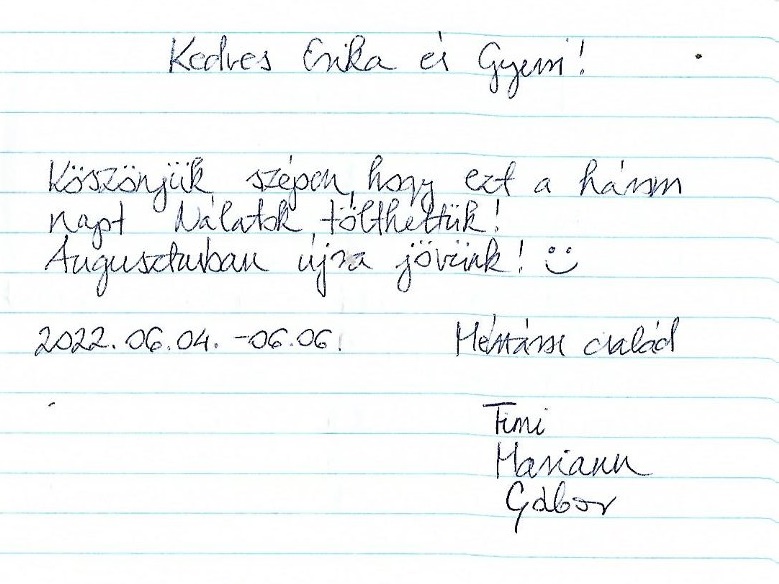 Kedves Erika és Gyuri!
Köszönjük szépen, hogy ezt a három
napt Nálatok tölthettük!
Augusztusban újra jövünk! :)
2022. 06. 04. - 06. 06.
család
Timi
Mariann
Gábor